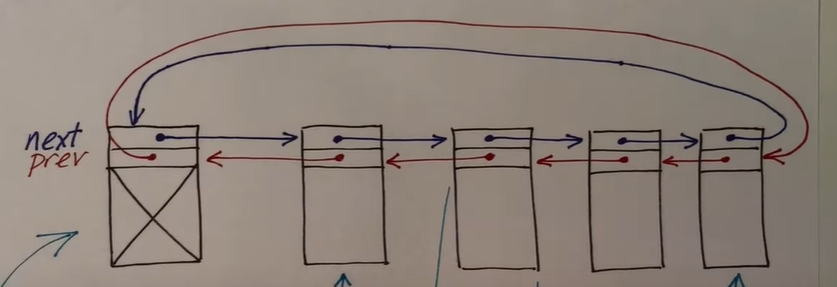 next
prev